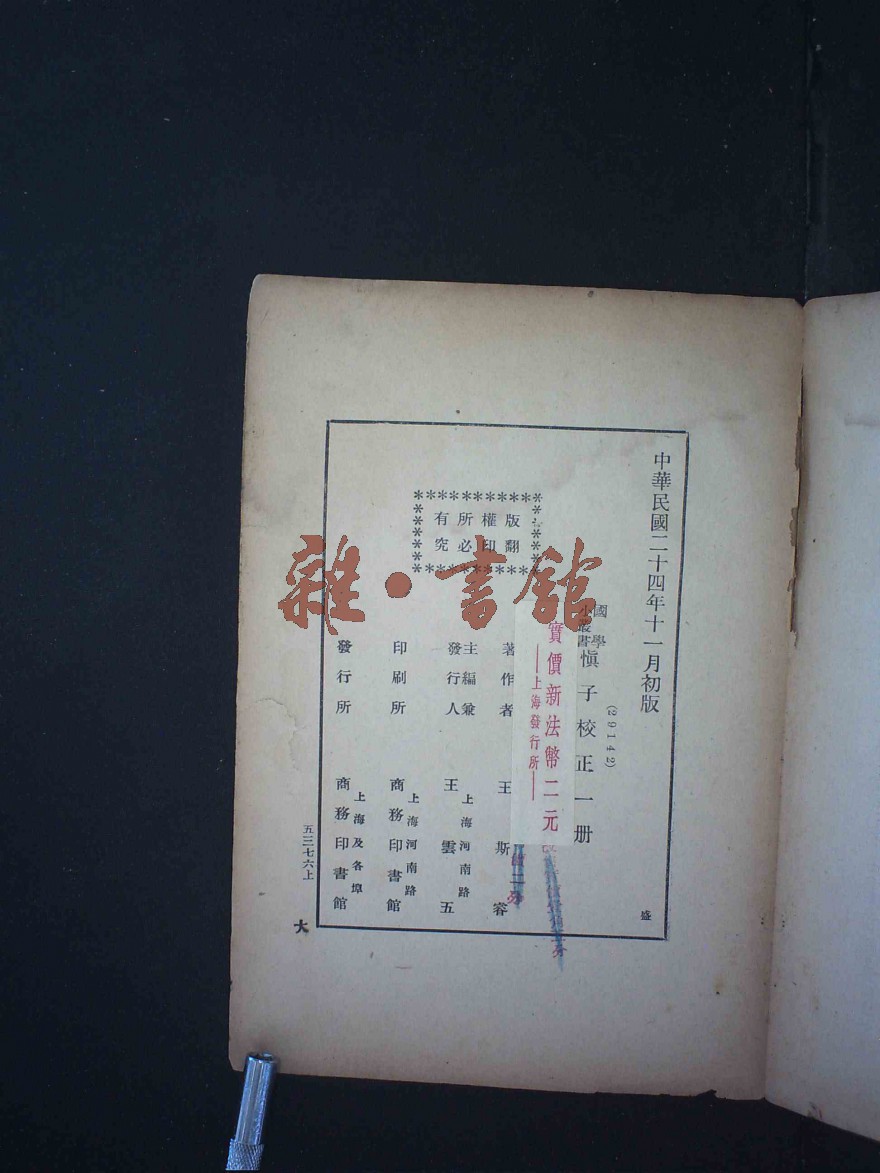 中華民國二十四年十一月初版
(29142)
國學
小叢書
慎子校正一册
實價新法幣二元
——上海發行所——
版權所有
翻印必究
著作者 王斯睿
主編兼
發行人 王雲五
上海河南路
印刷所 商務印書館
上海河南路
發行所 商務印書館
上海及各埠
五三七六上
大
盛
雜·書館